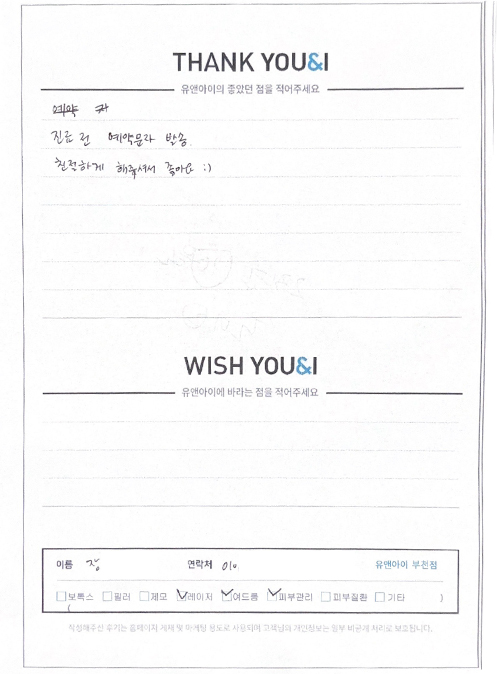 THANK YOU&I
유앤아이의 좋았던 점을 적어주세요
예약
진료 전 예약문자 발송
친절하게 해주셔서 좋아요 :)
WISH YOU&I
유앤아이에 바라는 점을 적어주세요
이름 장 연락처 010 유앤아이 부천점
보톡스 필러 제모 레이저 여드름 피부관리 피부질환 기타
( )
작성해주신 후기는 홈페이지 게재 및 마케팅 용도로 사용되며 고객님의 개인정보는 일부 비공개 처리로 보호됩니다.